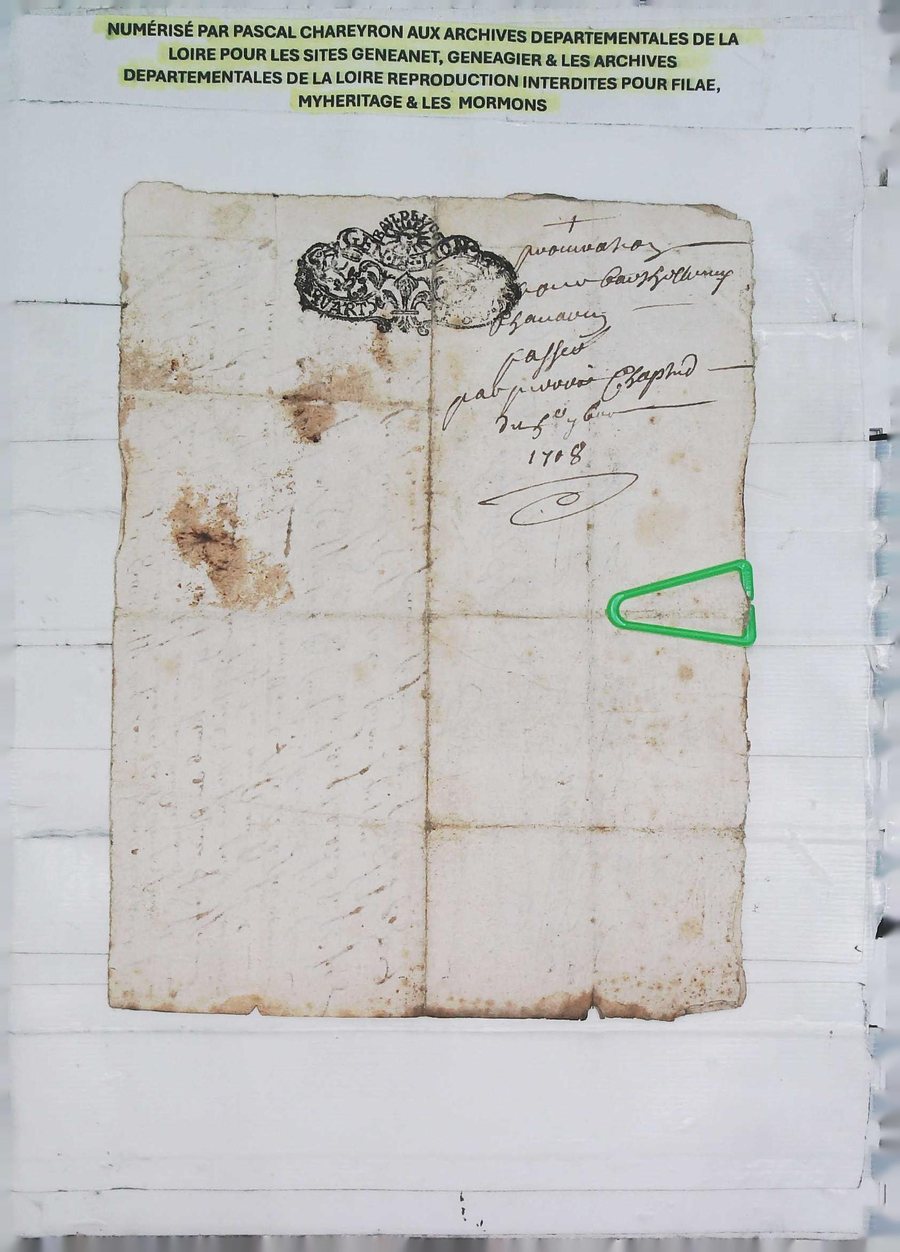 NUMÉRISÉ PAR PASCAL CHAREYRON AUX ARCHIVES DEPARTEMENTALES DE LA
LOIRE POUR LES SITES GENEANET, GENEAGIER & LES ARCHIVES
DEPARTEMENTALES DE LA LOIRE REPRODUCTION INTERDITES POUR FILAE,
MYHERITAGE & LES MORMONS
procuration
pour barthellemy
passée
par pierre Chaptard
du 5e 9bre
1708